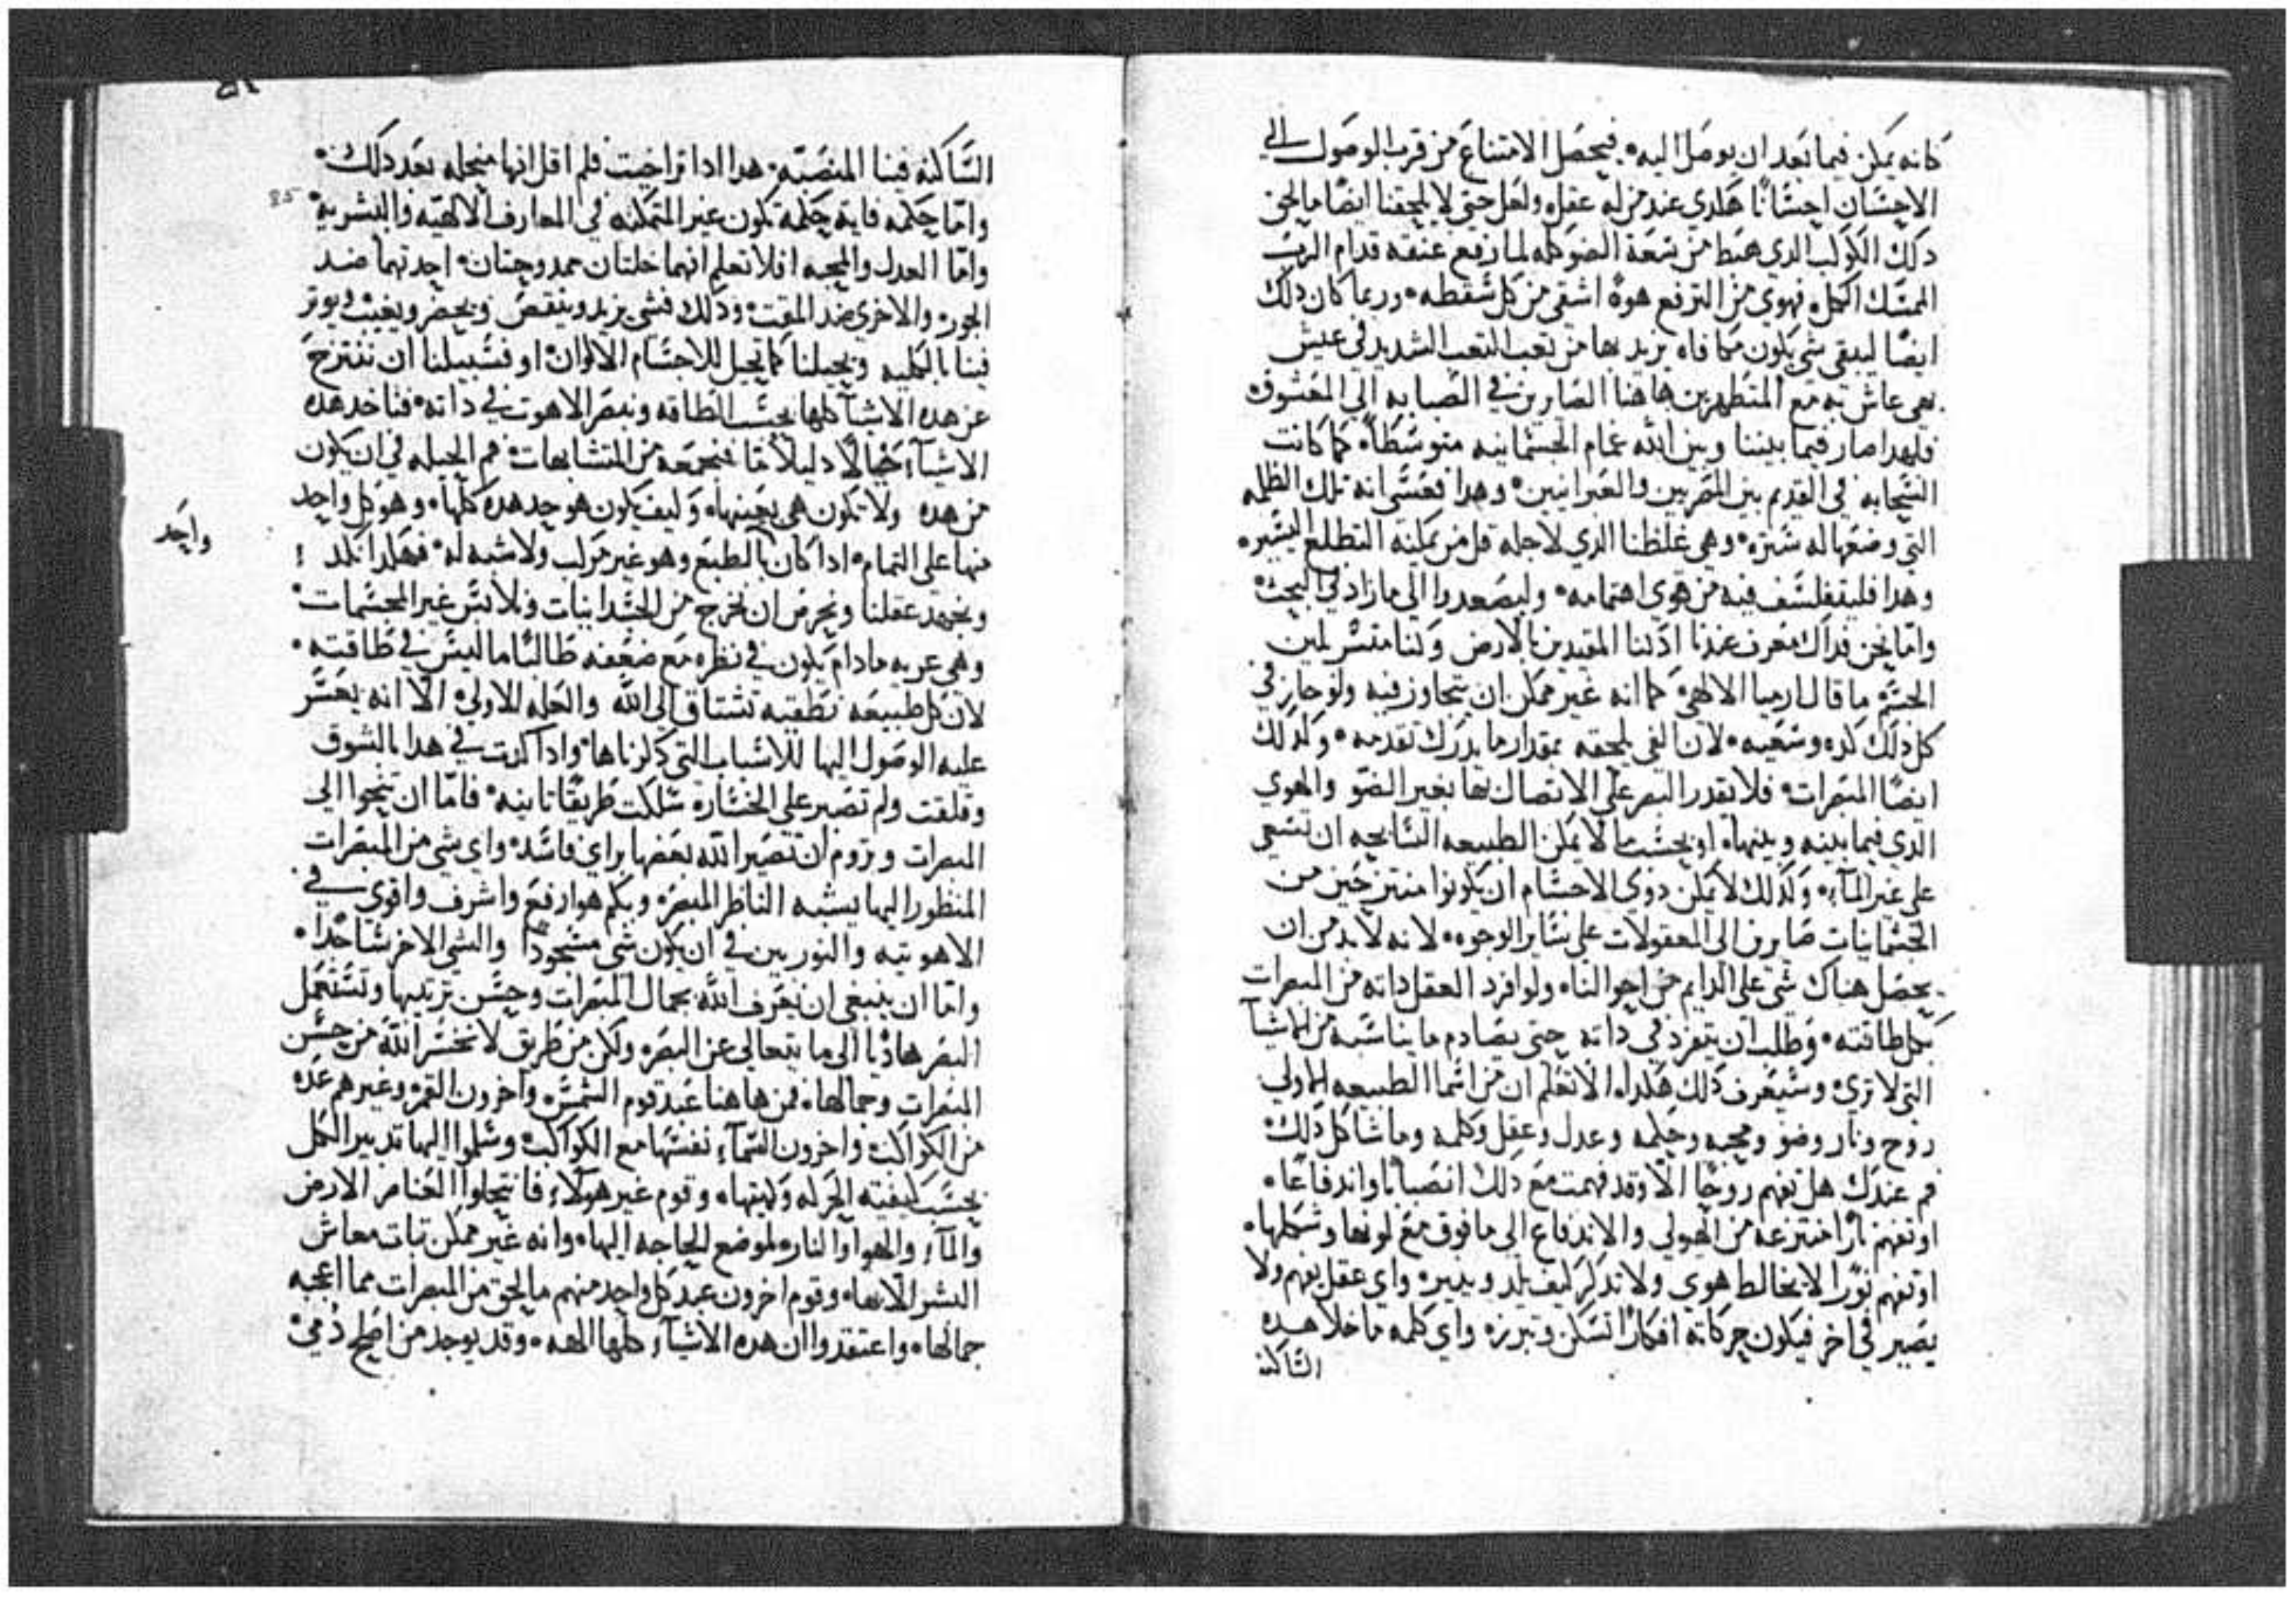 كانه يمكن فيما بعد ان يوصل اليه. فيحصل الامتناع من قرب الوصول الي
الاحسان احسانا هكدي عند من له عقل ولعل حتي لا يلحقنا ايضا ما لحق
دلك الكوكب الدي هبط من سعة الضو كله لما رفع عنقه قدام الرب
الممسك الكل. فهوي من الترفع هوة اشقي من كل سقطه. وربما كان دلك
ايضا ليبقي شي يكون مكافاه يزيد بها من تعب التعب الشديد في عيش
بهي عاش به مع المتطهرين هاهنا الصابرين في الصبابه الي المعشوق.
فلهدا صار فيما بيننا وبين الله غمام الجسمانيه متوسطا. كما كانت
السحابه في القديم بين المصريين والعبرانيين. وهدا فعسي انه تلك الظلمه
التي وضعها له ستره. وهي غلظنا الدي لاجله قل من يمكنه التطلع اليسير.
وهدا فليتفلسف فيه من هوي اهتمامه. وليصعدوا الي ما زاد في البحث
واما نحن فداك معرف عندنا ادننا المقيدين بالارض ولنا متسرلمين
الجسم ما قال ارميا الالاهي كما انه غير ممكن ان يتجاوز فيه ولو حاز في
كل دلك كده وسعيه. لان الفي يلحقه بمقدار ما يدرك تقدمه. وكدلك
ايضا المبصرات فلا يقدر البصر علي الاتصال بها بغير الضو والهوي
الدي فيما بينه وبينها. او بحسب ما لا يمكن الطبيعه السابحه ان تسعي
علي غير المآء. وكدلك لا يمكن دوي الاجسام ان يكونوا منتزحين من
الجسمانيات صايرين الي المعقولات علي ساير الوجوه. لانه لا بد من ان
يحصل هناك شي علي الدايم من احوالنا. ولو افرد العقل داته من المبصرات
بكل طاقته. وطلب ان يتفرد في داته حتي يصادم ما يناسبه من الاشيآ
التي لا تري. وستعرف دلك هكدا. الا تعلم ان من اسما الطبيعه الاولي
روح ونار وضو ومحبه وحكمه وعدل وعقل وكلمه وما شاكل دلك.
قم عندك هل تفهم روحا الا وقد فهمت مع دلك انصبابا واندفاعا.
او تفهم نارا منتزعه من الهيولي والاندفاع الي ما فوق مع لونها وشكلها.
او تفهم نورا لا يخالط هوي ولا تدكر كيف يلد وينيره واي عقل يفهم ولا
يصير في اخر فيكون حركاته افكارا تسكن وتبرز. واي كلمه ما خلا هده
الساكنه
الساكنه فينا المنصبه. هدا ادا تراخيت فلم اقل انها منحله بعد دلك.
85
واما حكمه فاية حكمه تكون غير المتمكنه في المعارف الالاهيه والبشريه.
واما العدل والمحبه افلا تعلم انهما خلتان ممدوحتان. احدتهما ضد
الجور. والاخري ضد المقت. ودلك فشي يزيد وينقص ويحضر ويغيب ويوتر
فينا بالكليه ويحيلنا كما تحيل للاجسام الالوان. او فسبيلنا ان ننتزح
عن هده الاشيآ كلها بحسب الطاقه ونبصر الاهوت في داته. فناخد هده
الاشيآء خيالا دليلا ما نجمعه من المتشابهات. فم الحيله في ان يكون
من هده ولا تكون هي بعينها. وكيف يكون هو حد هده كلها. وهو كل واحد
واحد
منها علي التمام. ادا كان بالطبع وهو غير مركب ولا شبه له. فهكدا نكد
ويجهد عقلنا ونحرص ان نخرج من الجسدانيات ونلابس غير المجسمات.
وهي عريه ما دام يكون في نظره مع ضعفه طالبا ما ليس في طاقته.
لان كل طبيعه نطقيه تشتاق الي الله والعله الاولي. الا انه يعسر
عليه الوصول اليها للاسباب التي دكرناها. وادا كدت في هدا بالشوق
وقلقت ولم تصبر علي الخساره سلكت طريقا تانيه. فاما ان تنحوا الي
المبصرات وتروم ان تصير الله بعضها براي فاسد. واي شي من المبصرات
المنظور اليها يشبه الناظر المبصر. وبكم هو ارفع واشرف واقوي في
الاهوتيه والنوريين في ان يكون شي مسجودا والشي الاخر ساجدا.
واما ان ينبغي ان يعرف الله بجمال المبصرات وحسن ترتيبها وتستعمل
البصر هاديا الي ما يتعالي عن البصر. ولكن من طريق لا نخسر الله من حسن
المبصرات وجمالها. فمن هاهنا عبد قوم الشمس واخرون القمر. وغيرهم عده
من الكواكب. واخرون السمآء نفسها مع الكواكب. وسلموا اليها تدبير الكل
بحسب كيفية الحركه وكيتها. وقوم غير هولآء فانتحلوا العناصر الارض
والمآء والهوا والنار. لموضع الحاجه اليها. وانه غير ممكن تبات معاش
البشر الا بها. وقوم اخرون عبد كل واحد منهم ما لحق من المبصرات مما اعجبه
جمالها. واعتقدوا ان هده الاشيآء كلها الهه. وقد يوجد من اصلح دمي